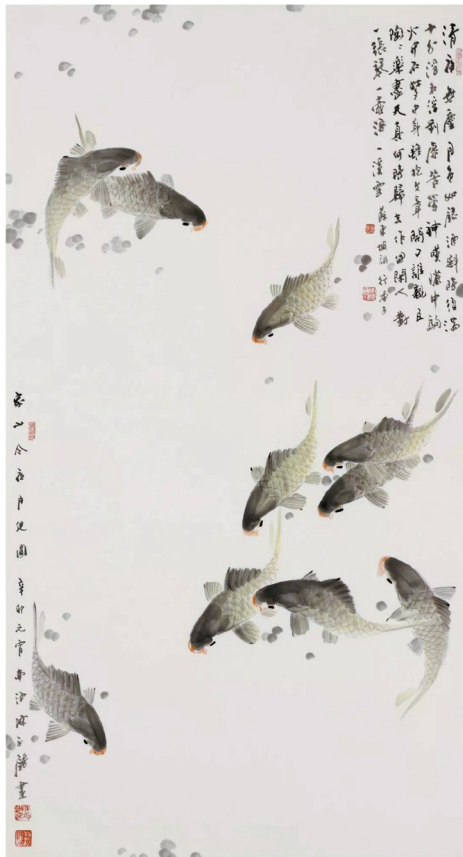 清夜無塵月色如銀酒斟時須滿
十分浮名浮利虛苦勞神嘆隙中駒
夢中身雖抱文章開口誰親且
陶陶樂盡天真何時歸去作個閑人對
一張琴一壺酒一溪雲 蘇東坡詞行香子
家山今夜月圓 辛卯元宵南沙畫